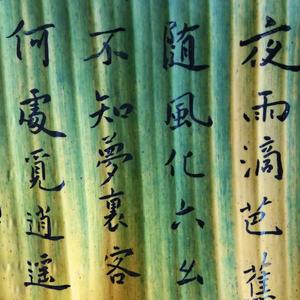 夜雨滴芭蕉
随風化六幺
不知夢裏客
何處覓逍遥